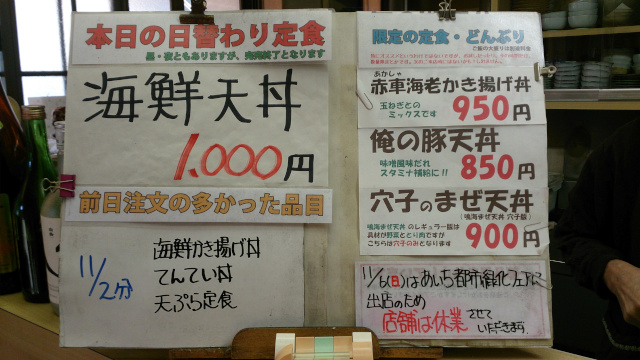 本日の日替わり定食
昼・夜ともありますが、完売終了となります
海鮮天丼
1.000円
前日注文の多かった品目
11/2分
海鮮かき揚げ丼
てんてい丼
天ぷら定食
限定の定食・どんぶり
ご飯の大盛りは別途料金
あかしゃ
赤車海老かき揚げ丼
玉ねぎとの
ミックスです
950円
俺の豚天丼
味噌風味だれ
スタミナ補給に!!
850円
穴子のまぜ天丼
(鳴海まぜ天丼 穴子版)
鳴海まぜ天丼 のレギュラー版は
具材が野菜ととり肉ですが
こちらは穴子のみとなります
900円
11/6(日)はあいち都市緑化フェアに
出店のため
店舗は休業させて
いただきます。